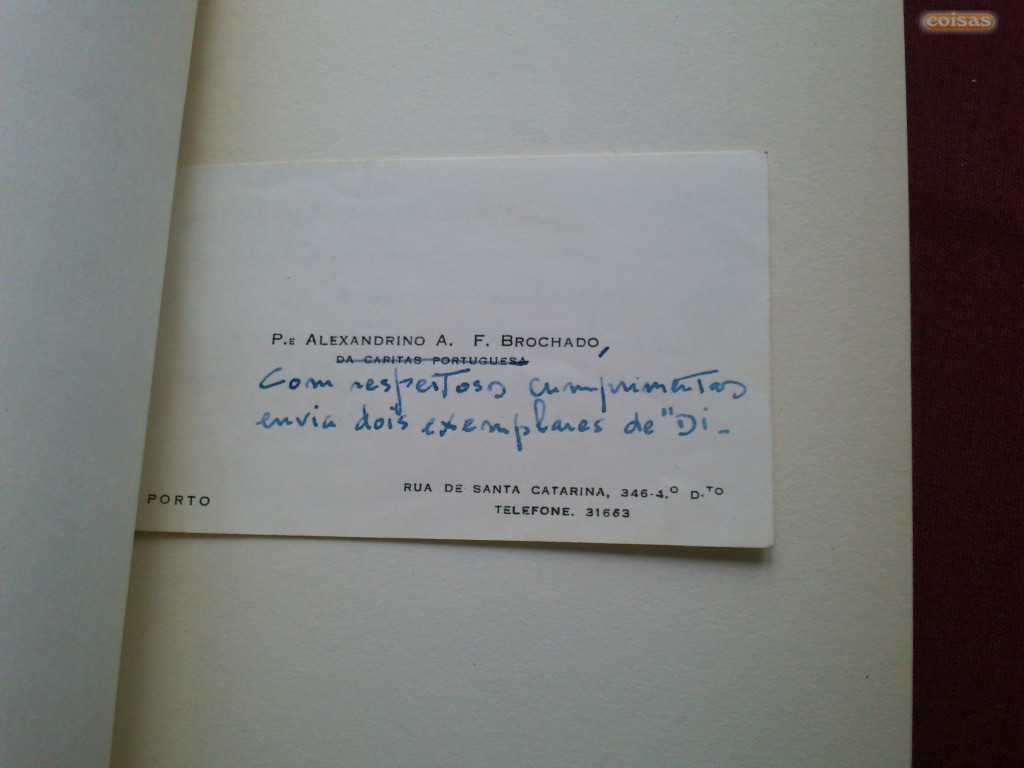 coisas
P.E ALEXANDRINO A. F. BROCHADO,
DA CARITAS PORTUGUESA
Com respeitosos cumprimentos
envia dois exemplares de "Di-
PORTO
RUA DE SANTA CATARINA, 346-4.º D.TO
TELEFONE. 31663